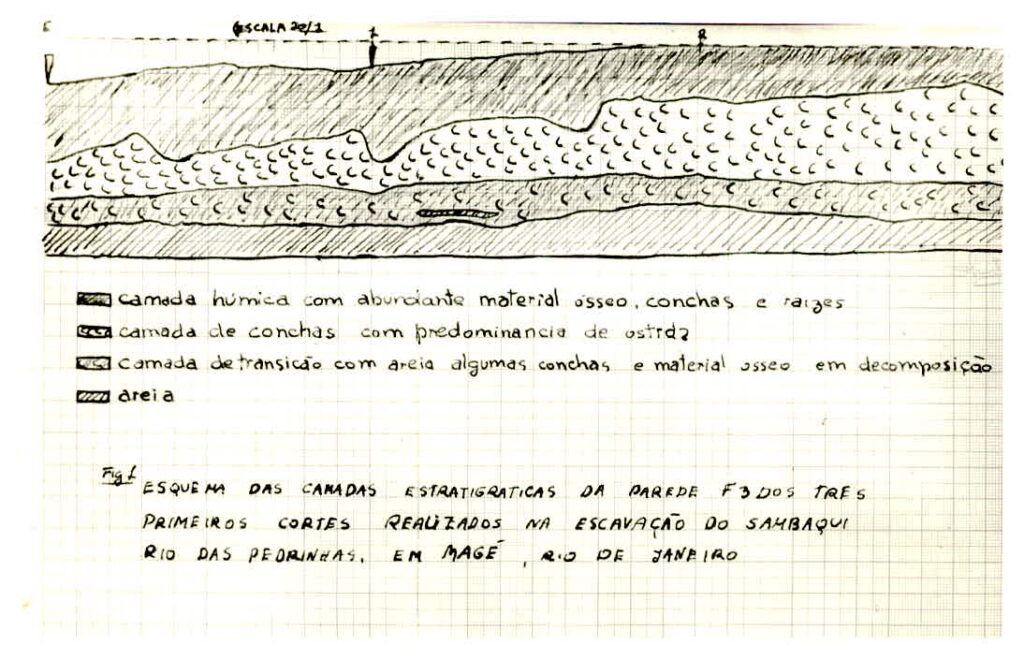 ESCALA 20/1
1 2
camada húmica com abundante material ósseo, conchas e raízes
camada de conchas com predominancia de ostrea
camada de transicão com areia algumas conchas e material osseo em decomposição
areia
Fig 1
ESQUEMA DAS CAMADAS ESTRATIGRATICAS DA PAREDE F3 DOS TRES
PRIMEIROS CORTES REALIZADOS NA ESCAVAÇÃO DO SAMBAQUI
RIO DAS PEDRINHAS, EM MAGÉ, RIO DE JANEIRO